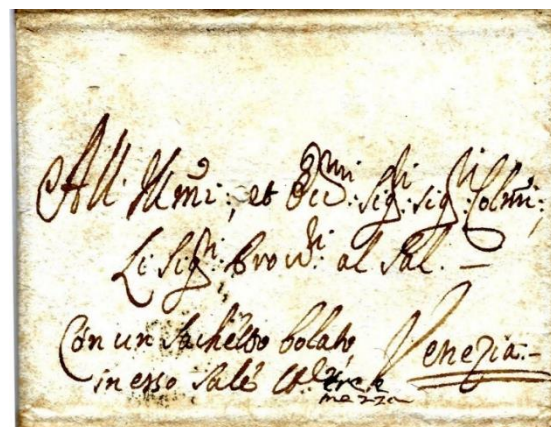 All' Illmi:, et Ecc:mi Sig:ri Sig:ri Colmi:,
Li Sig:ri Prov:ri al Sal. –
Con un sachetto bolato,
Venezia. –
in esso Sale
tre e
mezza